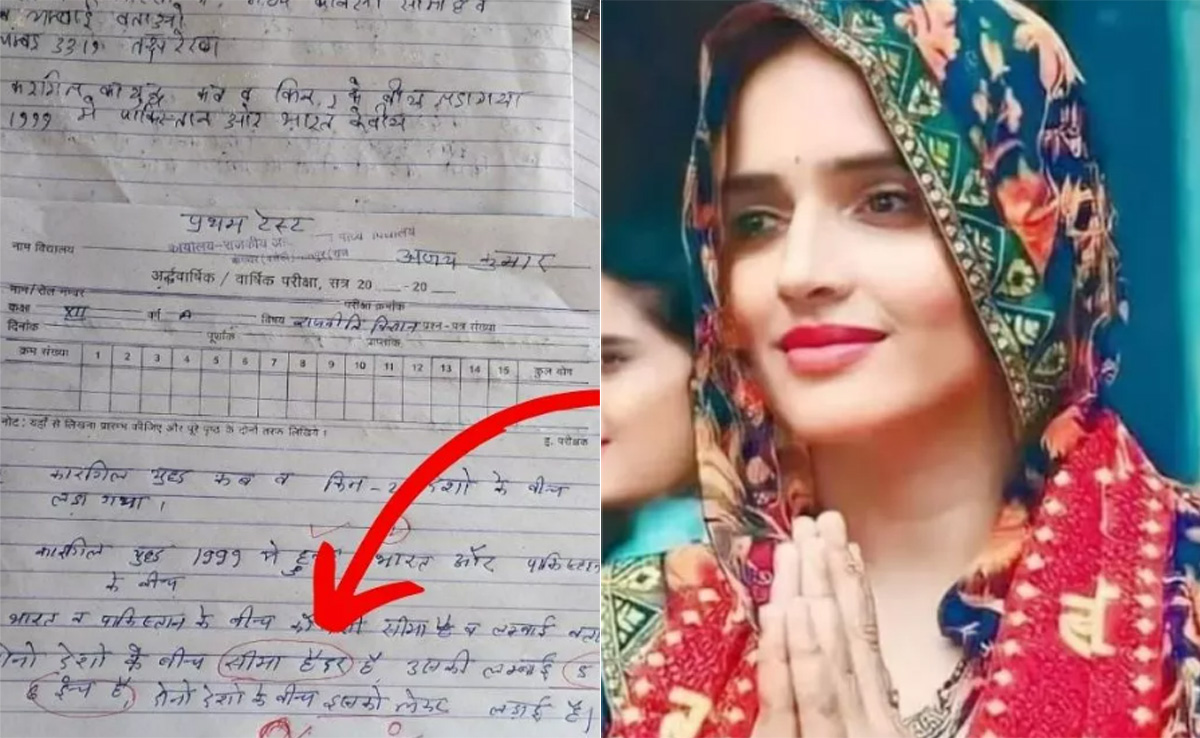 बताओ
3319
कारगिल का युद्ध कब व किन के बीच लडा गया
1999 मे पाकिस्तान और भारत के बीच
प्रथम टेस्ट
नाम विद्यालय कार्यालय-राजकीय
अजय कुमार
अर्द्धवार्षिक / वार्षिक परीक्षा, सत्र 20 -20
नाम/रोल नम्बर परीक्षा क्रमांक
कक्षा XII वर्ग A विषय राजनीति विज्ञान प्रश्न-पत्र संख्या
दिनांक पूर्णांक प्राप्तांक
क्रम संख्या 1 2 3 4 5 6 7 8 9 10 11 12 13 14 15 कुल योग
नोट: यहाँ से लिखना प्रारम्भ कीजिए और पूरे पृष्ठ के दोनों तरफ लिखिये।
ह. परीक्षक
कारगिल युद्ध कब व किन-2 देशो के बीच
लडा गया।
कारगिल युद्ध 1999 मे भारत और पाकिस्तान
के बीच
भारत व पाकिस्तान के बीच सीमा है व लम्बाई
दोनो देशो के बीच सीमा हैदर है उसकी लम्बाई 5
6 ईन्च है, दोनो देशो के बीच इसको लेकर लडाई है।